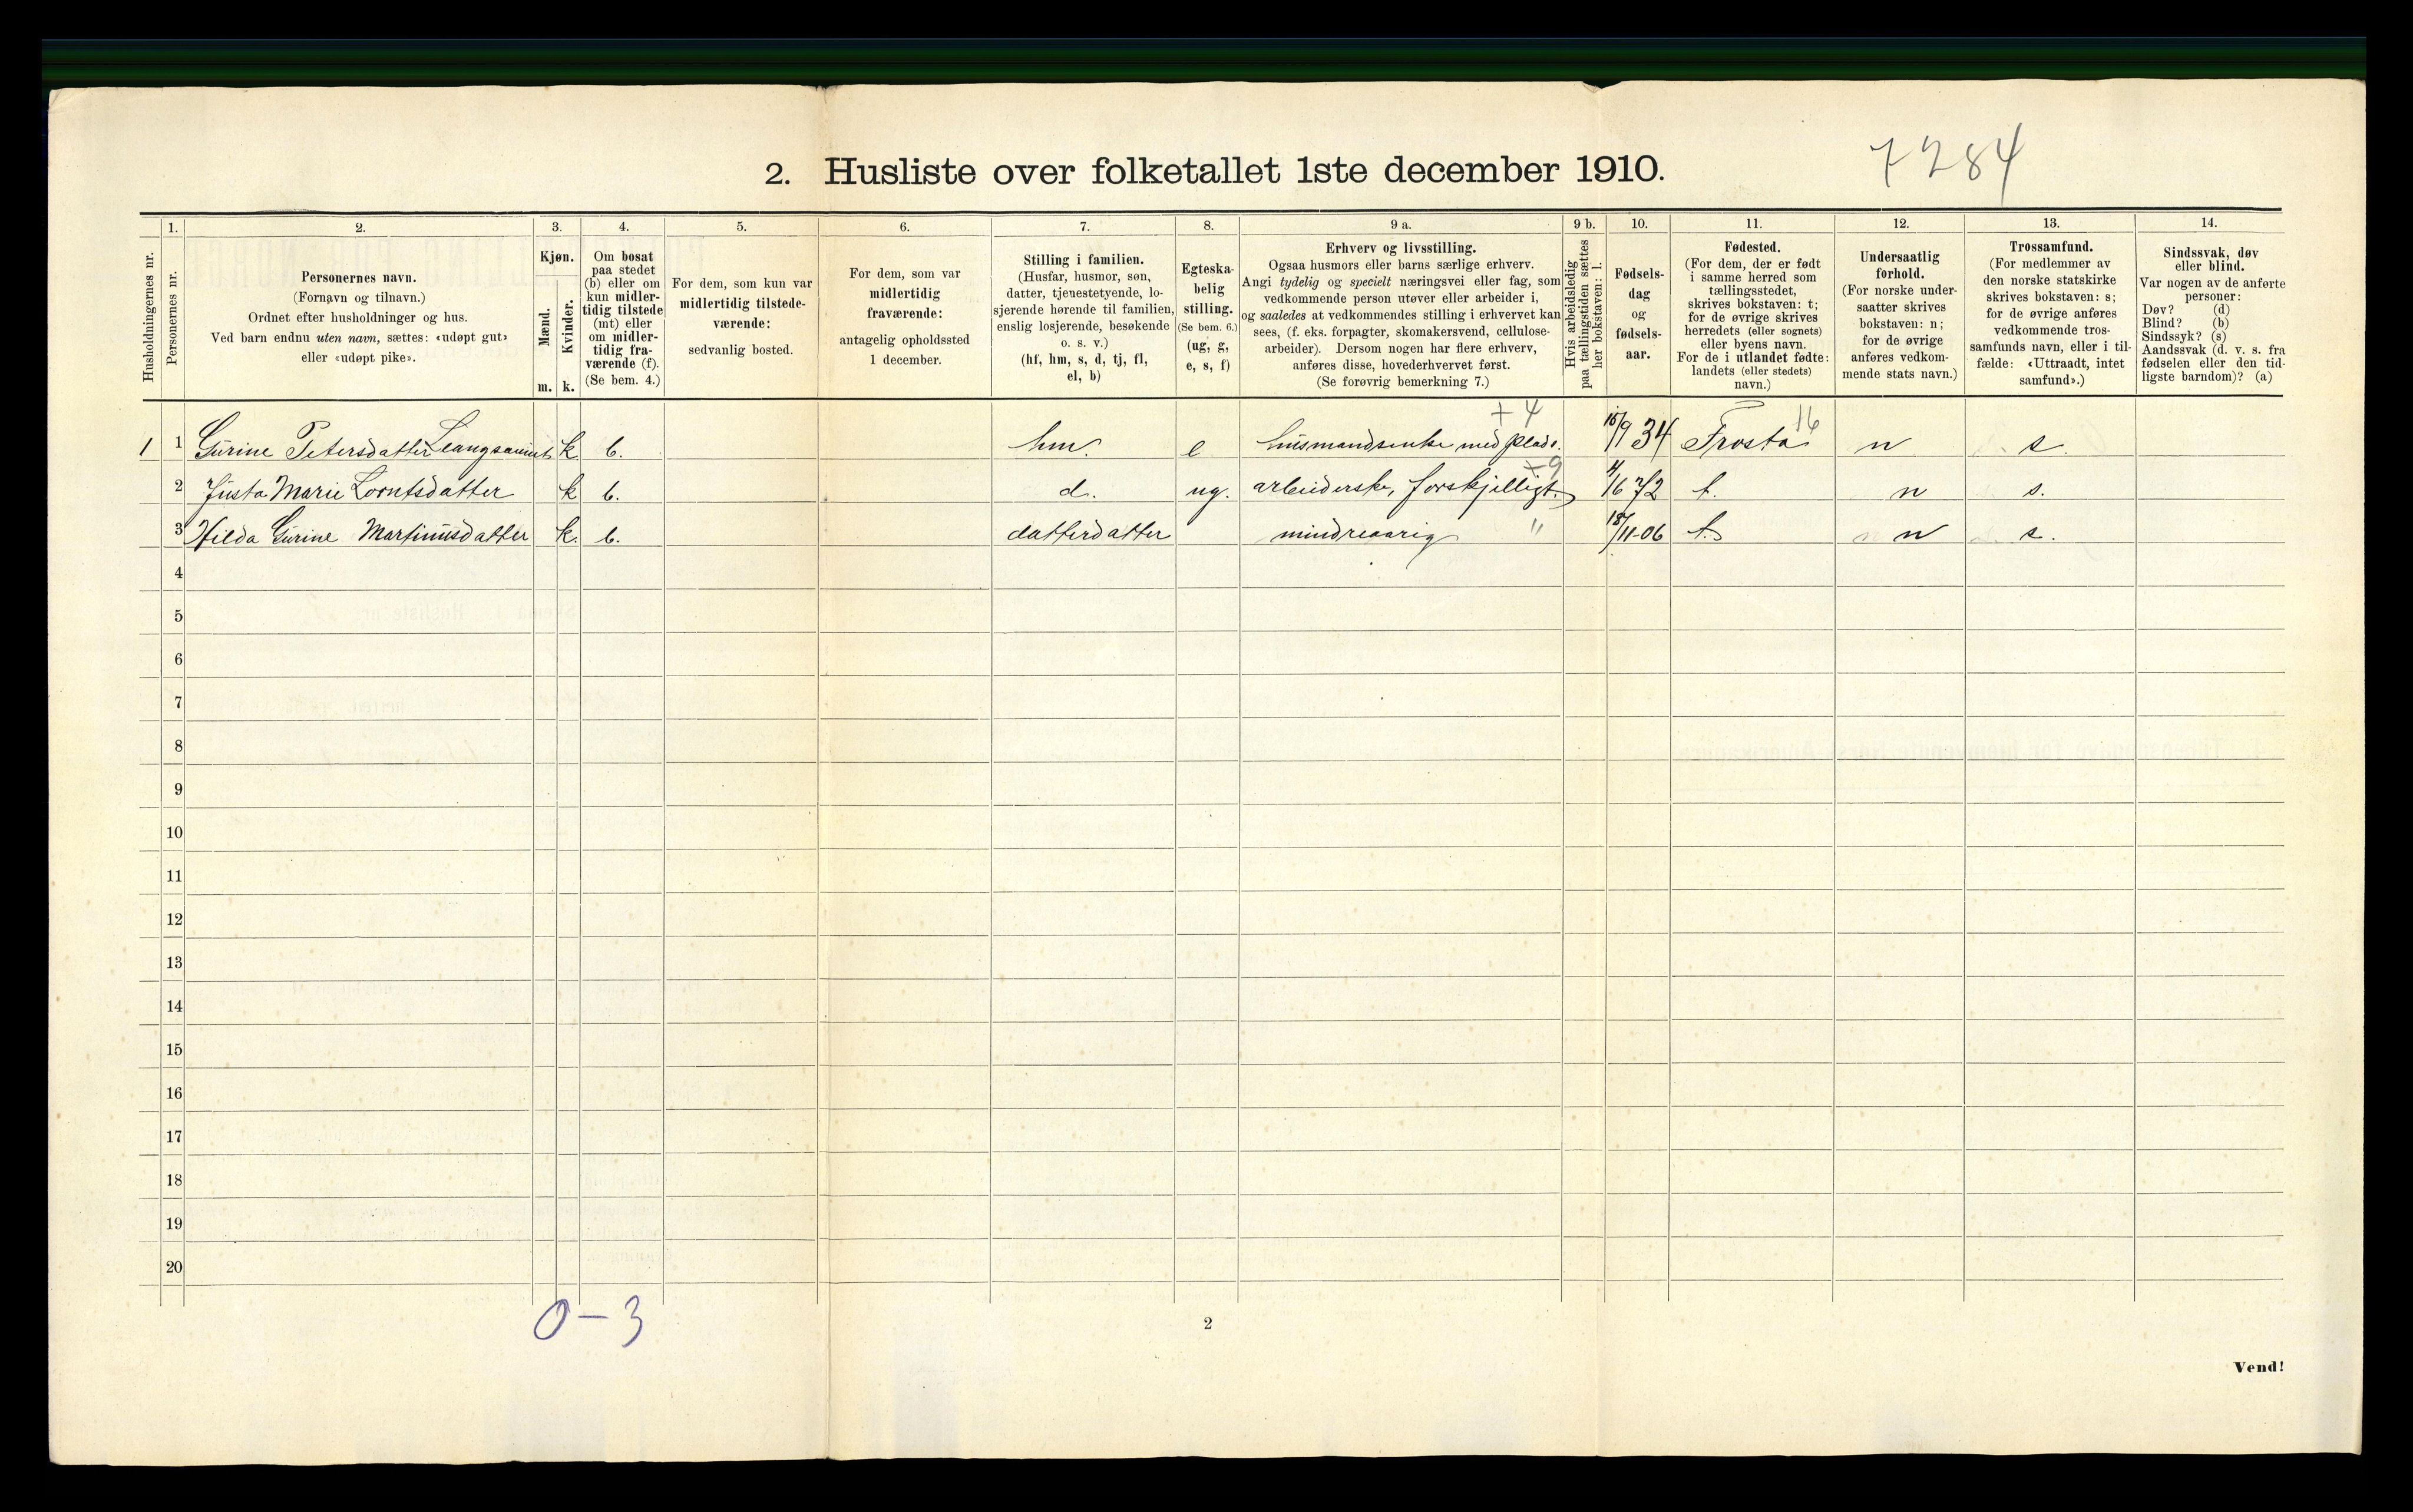 7284
2. Husliste over folketallet 1ste december 1910.
Husholdningernes nr.
1. Personernes nr.
2. Personernes navn.
(Fornavn og tilnavn.)
Ordnet efter husholdninger og hus.
Ved barn endnu uten navn, sættes: «udøpt gut»
eller «udøpt pike».
3. Kjøn.
Mænd. m.
Kvinder. k.
4. Om bosat
paa stedet
(b) eller om
kun midler-
tidig tilstede
(mt) eller
om midler-
tidig fra-
værende (f).
(Se bem. 4.)
5. For dem, som kun var
midlertidig tilstede-
værende:
sedvanlig bosted.
6. For dem, som var
midlertidig
fraværende:
antagelig opholdssted
1 december.
7. Stilling i familien.
(Husfar, husmor, søn,
datter, tjenestetyende, lo-
sjerende hørende til familien,
enslig losjerende, besøkende
o. s. v.)
(hf, hm, s, d, tj, fl,
el, b)
8. Egteska-
belig
stilling.
(Se bem. 6.)
(ug, g,
e, s, f)
9 a. Erhverv og livsstilling.
Ogsaa husmors eller barns særlige erhverv.
Angi tydelig og specielt næringsvei eller fag, som
vedkommende person utøver eller arbeider i,
og saaledes at vedkommendes stilling i erhvervet kan
sees, (f. eks. forpagter, skomakersvend, cellulose-
arbeider). Dersom nogen har flere erhverv,
anføres disse, hovederhvervet først.
(Se forøvrig bemerkning 7.)
9 b. Hvis arbeidsledig
paa tællingstiden sættes
her bokstaven: l.
10. Fødsels-
dag
og
fødsels-
aar.
11. Fødested.
(For dem, der er født
i samme herred som
tællingsstedet,
skrives bokstaven: t;
for de øvrige skrives
herredets (eller sognets)
eller byens navn.
For de i utlandet fødte:
landets (eller stedets)
navn.)
12. Undersaatlig
forhold.
(For norske under-
saatter skrives
bokstaven: n;
for de øvrige
anføres vedkom-
mende stats navn.)
13. Trossamfund.
(For medlemmer av
den norske statskirke
skrives bokstaven: s;
for de øvrige anføres
vedkommende tros-
samfunds navn, eller i til-
fælde: «Uttraadt, intet
samfund».)
14. Sindssvak, døv
eller blind.
Var nogen av de anførte
personer:
Døv? (d)
Blind? (b)
Sindssyk? (s)
Aandssvak (d. v. s. fra
fødselen eller den tid-
ligste barndom)? (a)
+ 4 16
1 1 Gurine Petersdatter k b. hm. e husmandsenke med plads. 15/9 34 Frosta n s.
+ 9
2 Justa Marie Lorntsdatter k b. d. ug. arbeiderske, forskjelligt. 4/6 72 t. n s.
3 Hilda Gurine Martinusdatter k. b. datterdatter mindreaarig " 18/11-06 t. n s.
4
5
6
7
8
9
10
11
12
13
14
15
16
17
18
19
20
0-3
2
Vend!